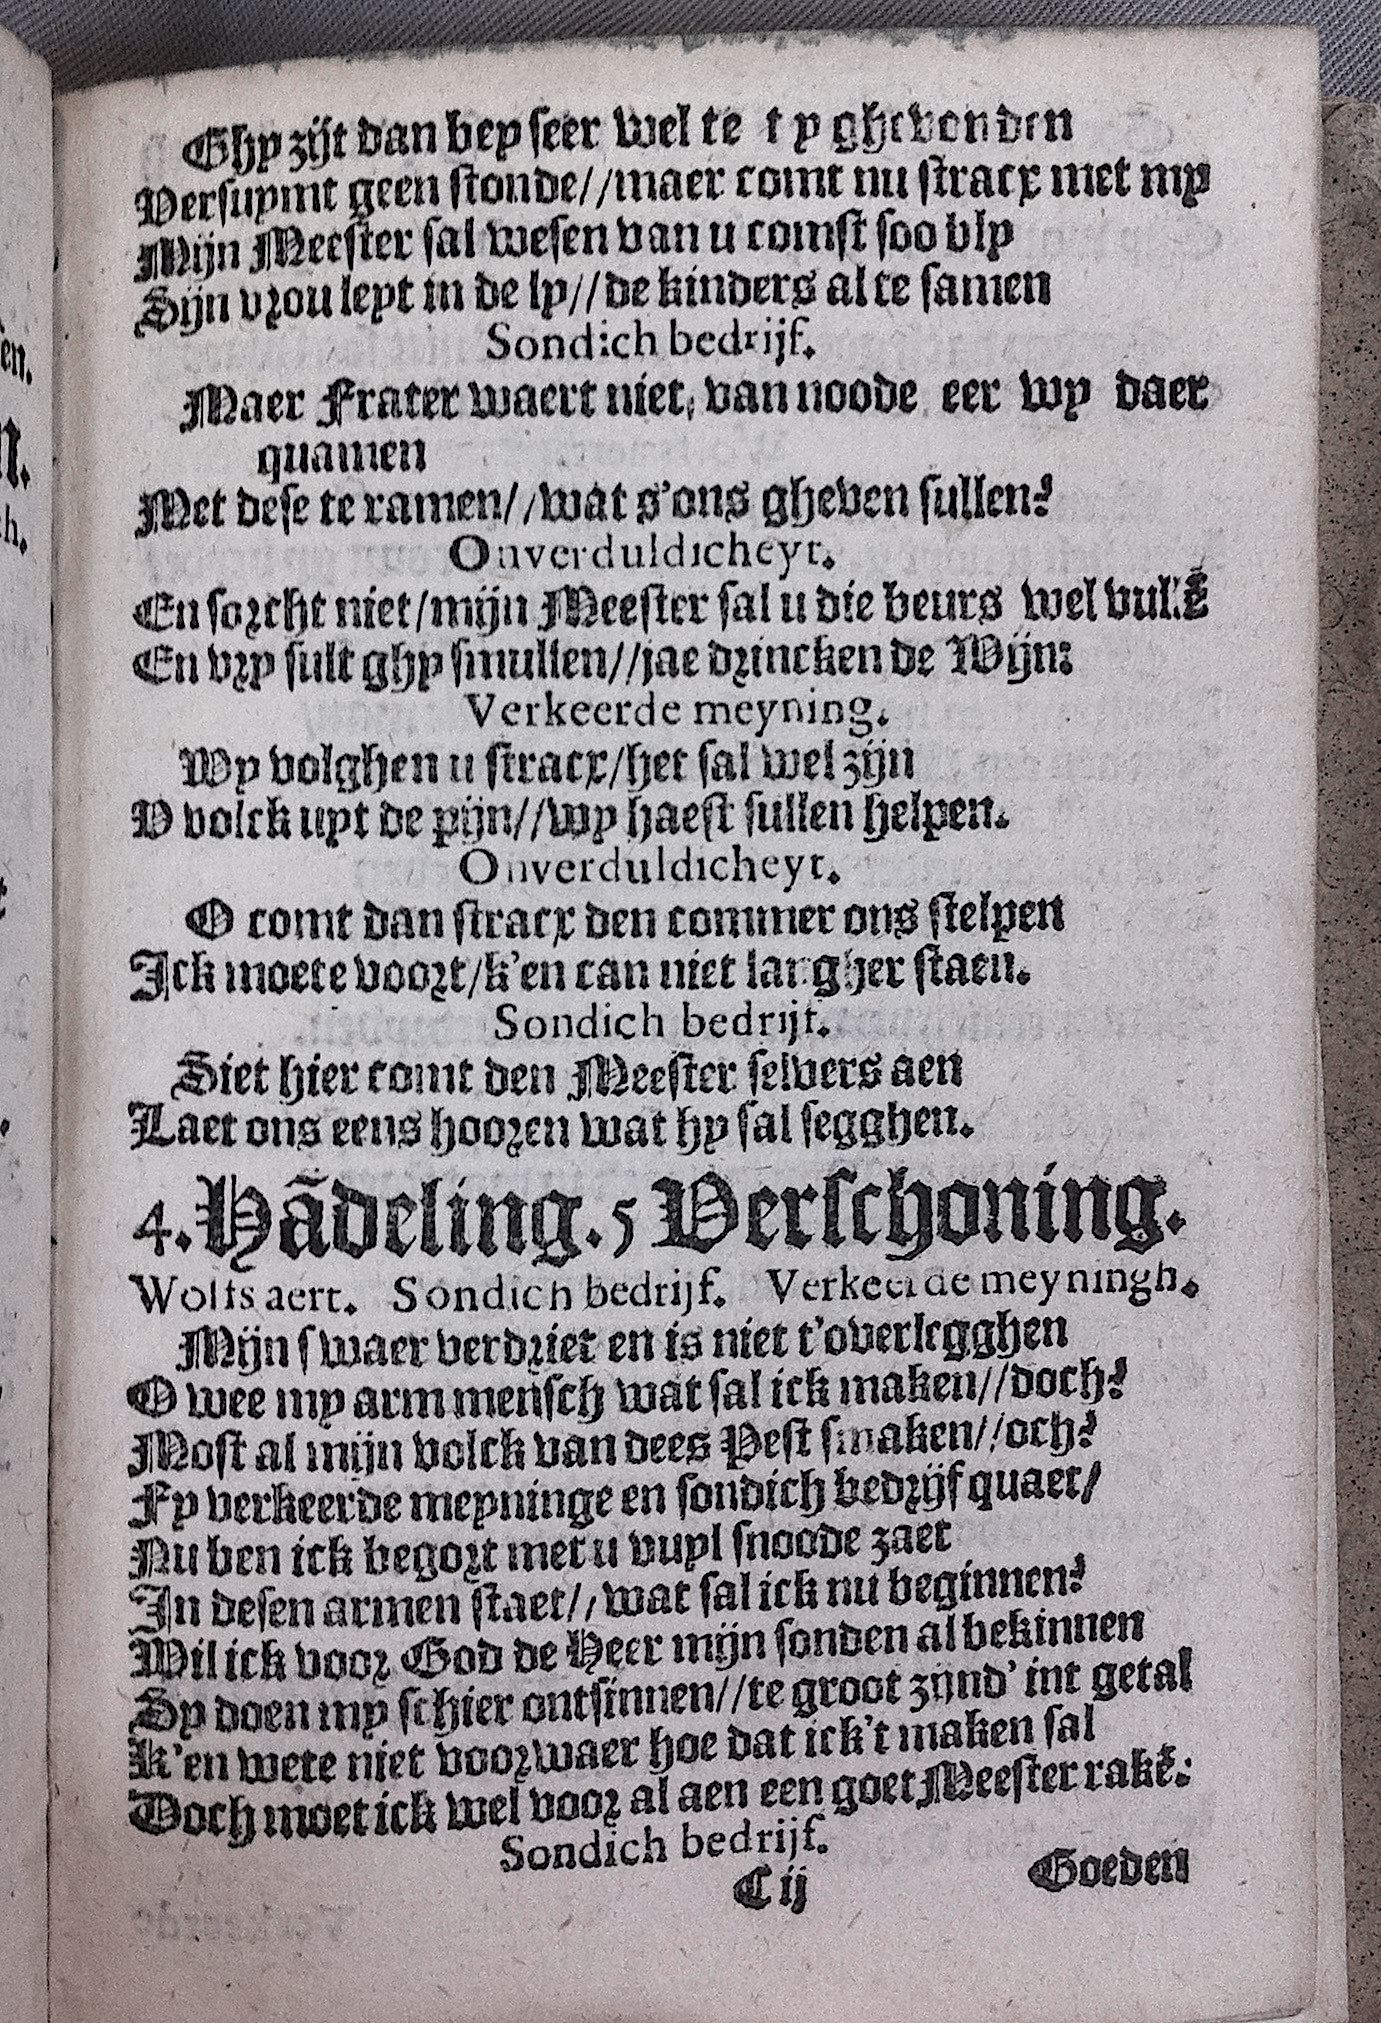 Ghy zijt van bey seer wel te t y ghevonden
Versuymt geen stonde//maer comt nu stracx met my
Mijn Meester sal wesen van u comst soo bly
Sijn vrou leyt in de ly//de kinders al te samen
Sondich bedrijf.
Maer Frater waert niet, van noode eer wy daer
quamen
Met dese te ramen//wat s'ons gheven sullen?
Onverduldicheyt.
En sorcht niet/mijn Meester sal u die beurs wel vullē
En vry sult ghy smullen//jae drincken de Wijn:
Verkeerde meyning.
Wy volghen u stracx/het sal wel zijn
V volck uyt de pijn//wy haest sullen helpen.
Onverduldicheyt.
O comt dan stracx den commer ons stelpen
Ick moete voort/k'en can niet langher staen.
Sondich bedrijf.
Siet hier comt den Meester selvers aen
Laet ons eens hooren wat hy sal segghen.
4. Hādeling. 5 Verschoning.
Wolfs aert. Sondich bedrijf. Verkeerde meyningh.
Mijn swaer verdriet en is niet t'overlegghen
O wee my arm mensch wat sal ick maken//doch?
Most al mijn volck van dees Pest smaken//och?
Fy verkeerde meyninge en sondich bedrijf quaet/
Nu ben ick begort met u vuyl snoode zaet
In desen armen staet//wat sal ick nu beginnen?
Wil ick voor God de Heer mijn sonden al bekinnen
Sy doen my schier ontsinnen//te groot zijnd' int getal
K'en wete niet voorwaer hoe dat ick't maken sal
Doch moet ick wel voor al aen een goet Meester rakē:
Sondich bedrijf.
C ij
Goeden